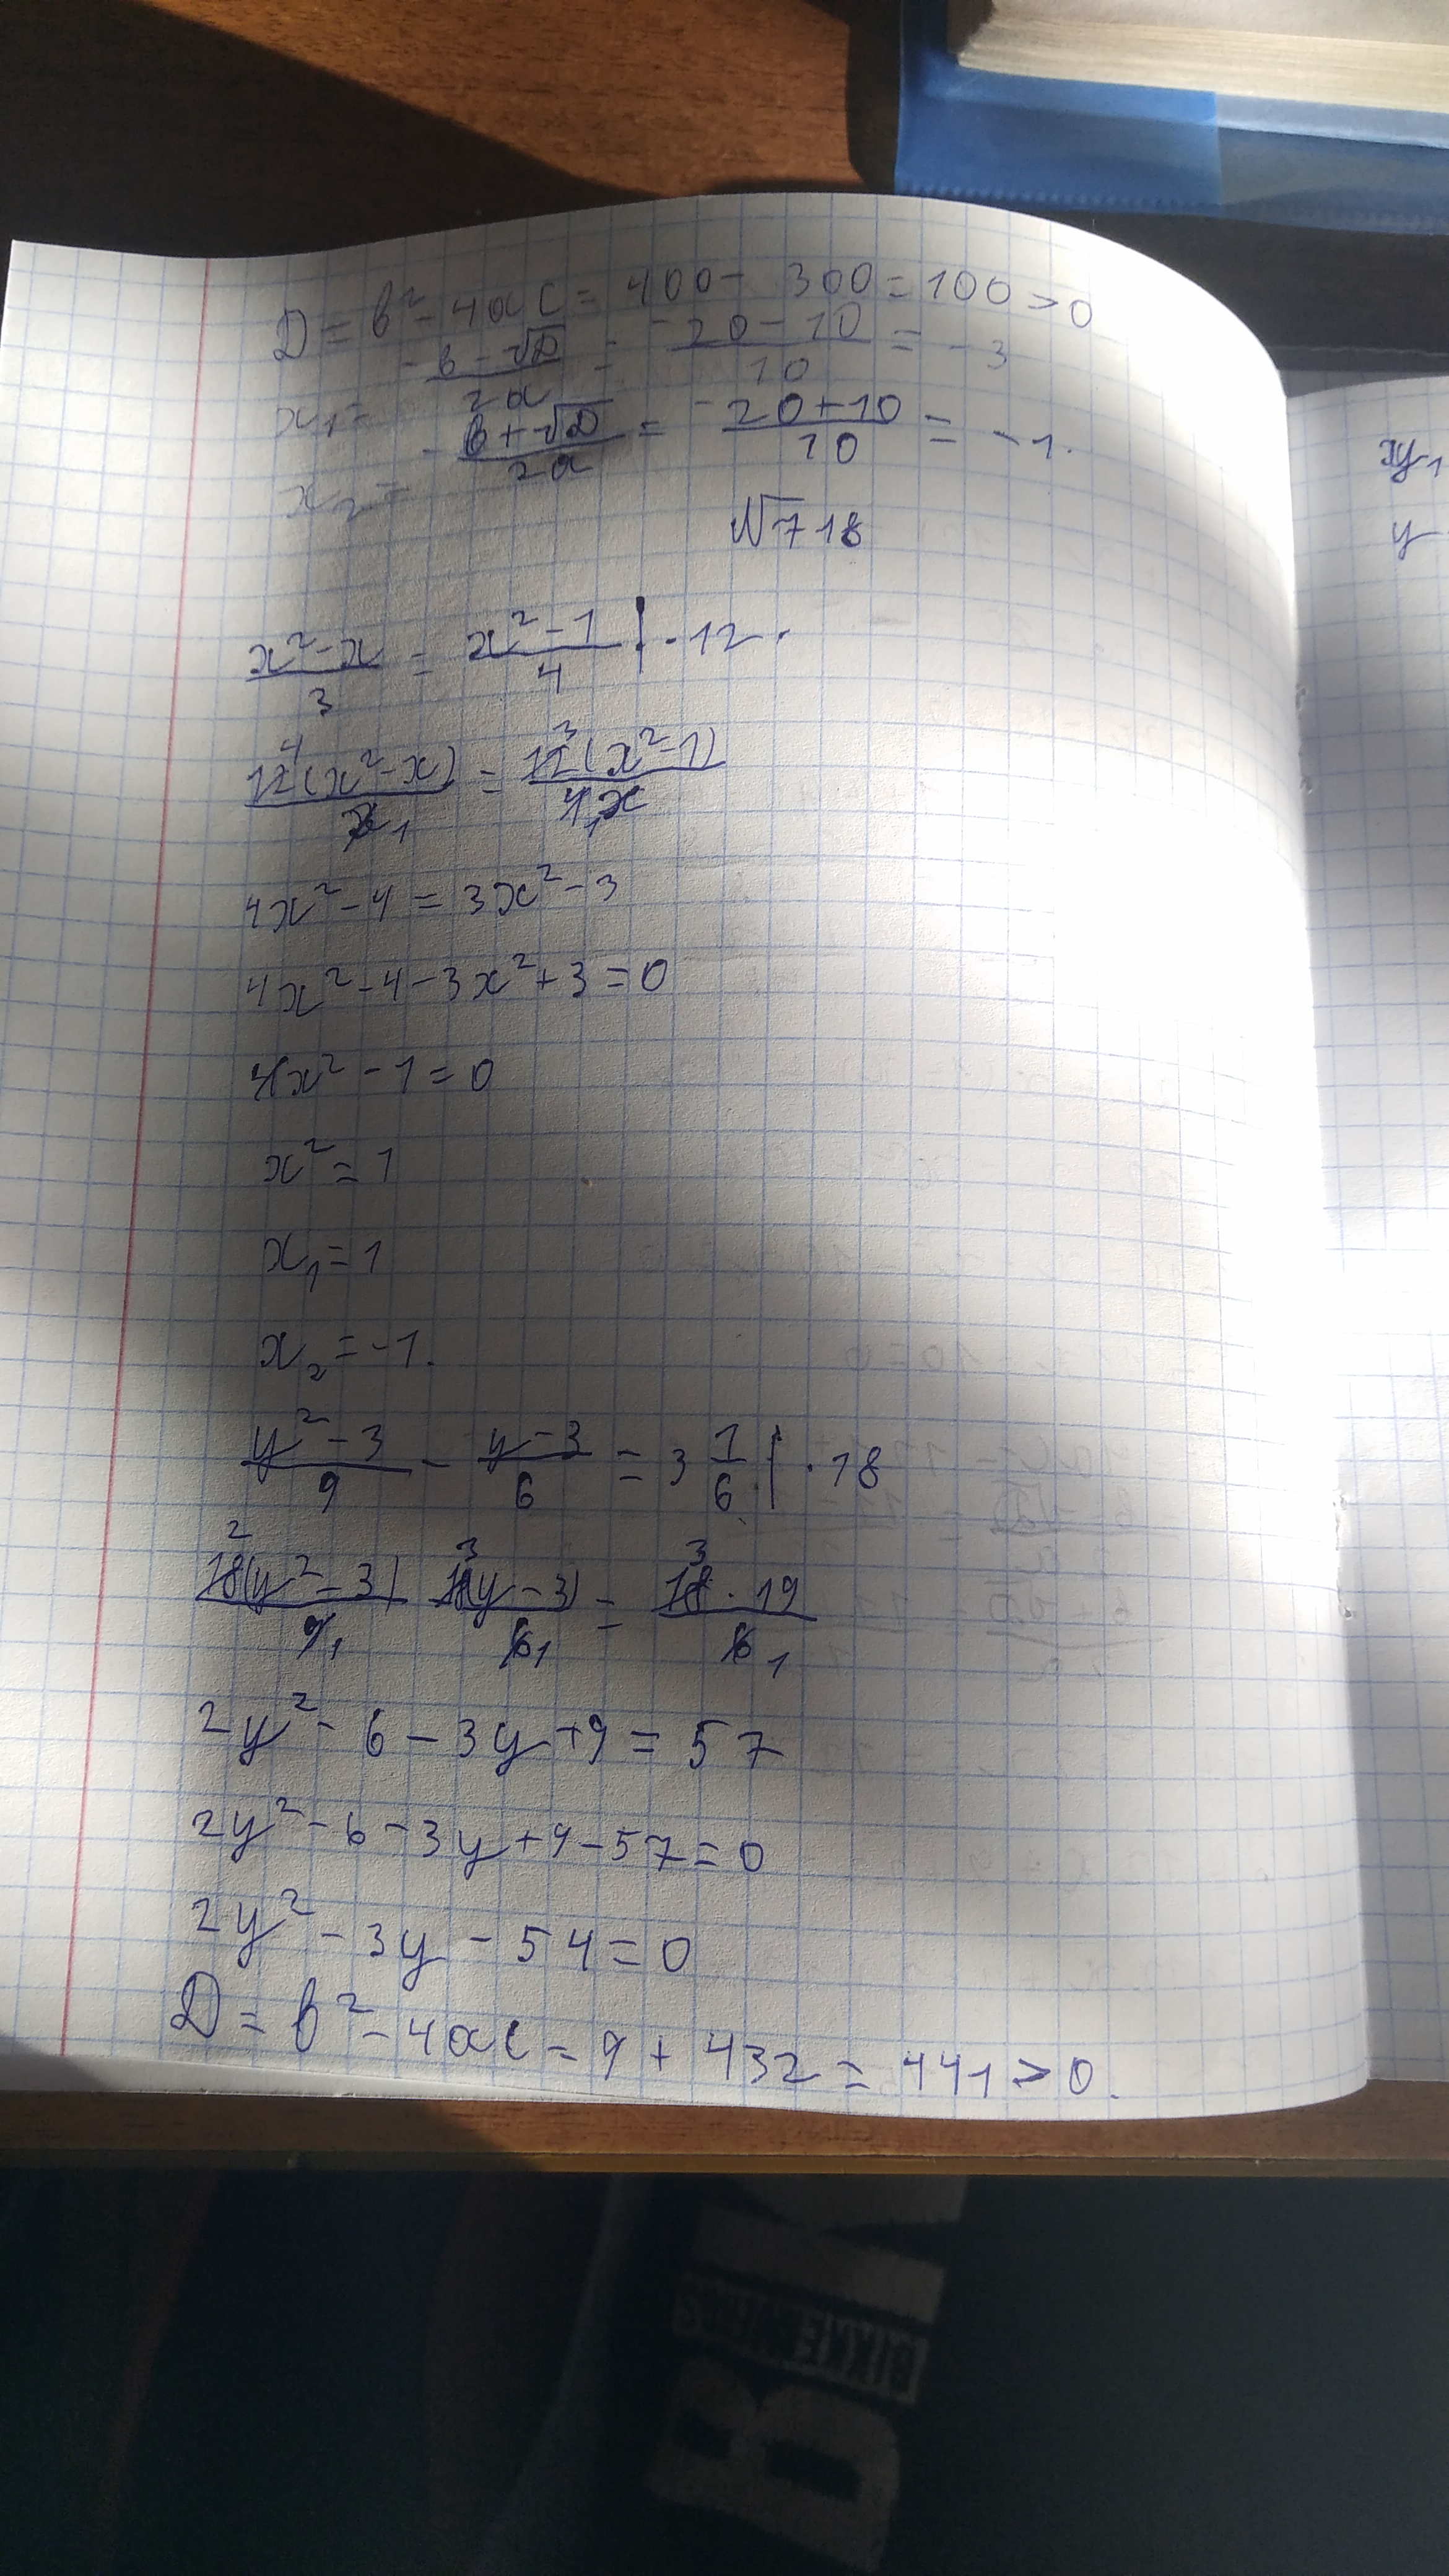 D = b² - 4ac = 400 - 300 = 100 > 0
x₁ = (-b - √D)/2a = (-20 - 10)/10 = -3
x₂ = (-b + √D)/2a = (-20 + 10)/10 = -1.
№718
(x² - x)/3 = (x² - 1)/4 | · 12 ·
12⁴(x² - x)/3₁ = 12³(x² - 1)/4₁
4x² - 4 = 3x² - 3
4x² - 4 - 3x² + 3 = 0
x² - 1 = 0
x² = 1
x₁ = 1
x₂ = -1.
(y² - 3)/9 - (y - 3)/6 = 3 1/6 | · 18
18²(y² - 3)/9₁ 18³(y - 3)/6₁ = 18³ · 19/6₁
2y² - 6 - 3y + 9 = 57
2y² - 6 - 3y + 9 - 57 = 0
2y² - 3y - 54 = 0
D = b² - 4ac = 9 + 432 = 441 > 0.
xy₁
y